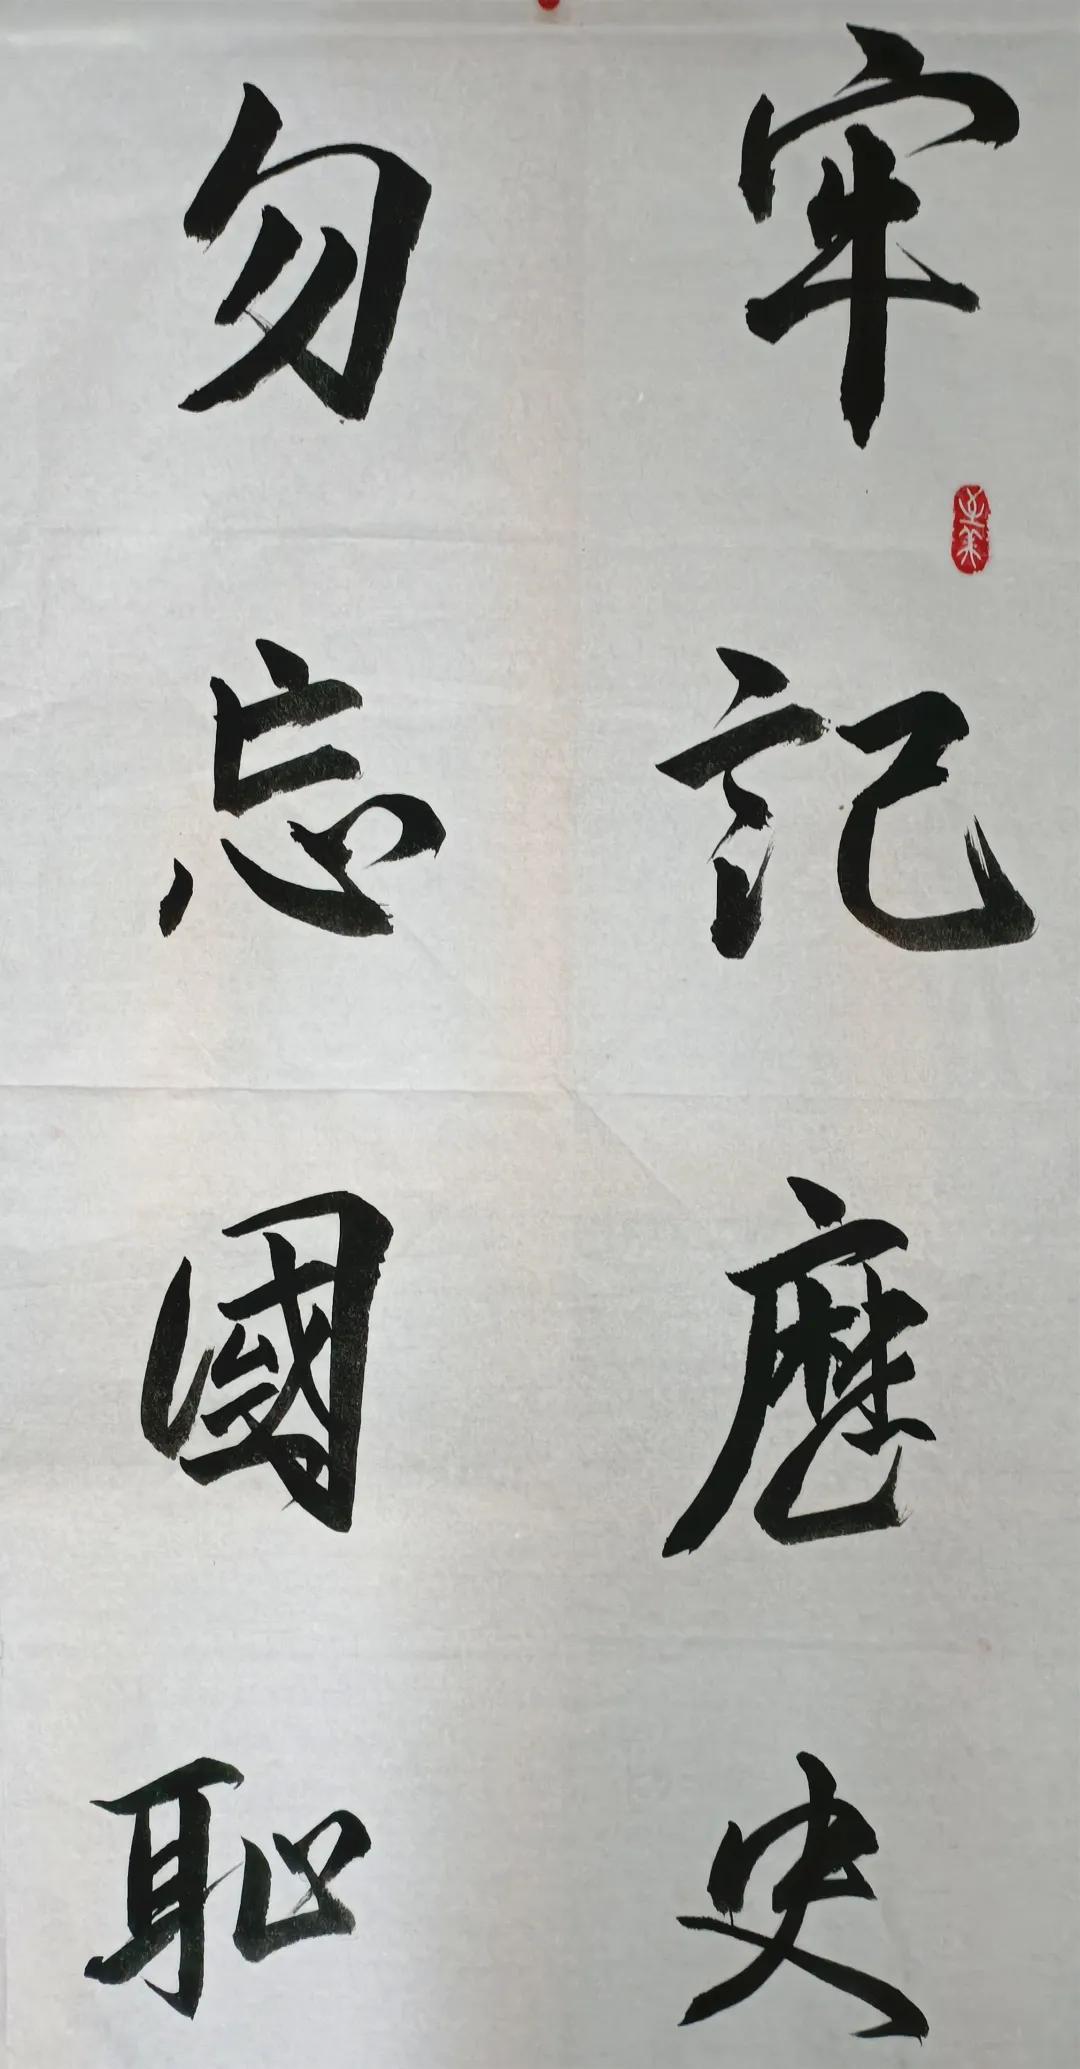 牢記歷史
勿忘國恥